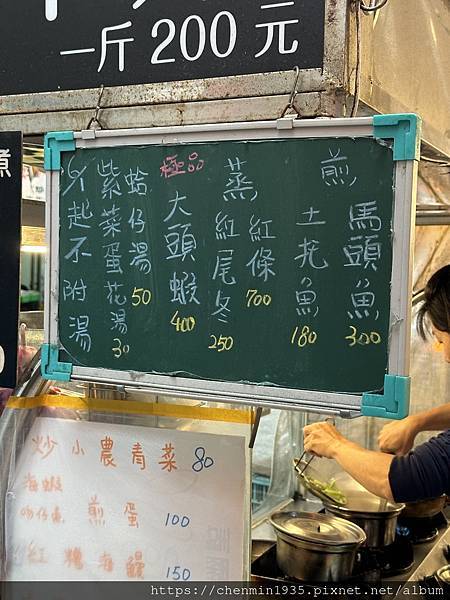 一斤200元
煎
馬頭魚
300
土托魚
180
蒸
紅條
700
紅尾冬
250
極品
大頭蝦
400
蛤仔湯
50
紫菜蛋花湯
30
外起不附湯
炒小農青菜 80
海蝦
吻仔魚
煎蛋 100
紅糟海鰻 150
https://chenmin1935.pixnet.net/album